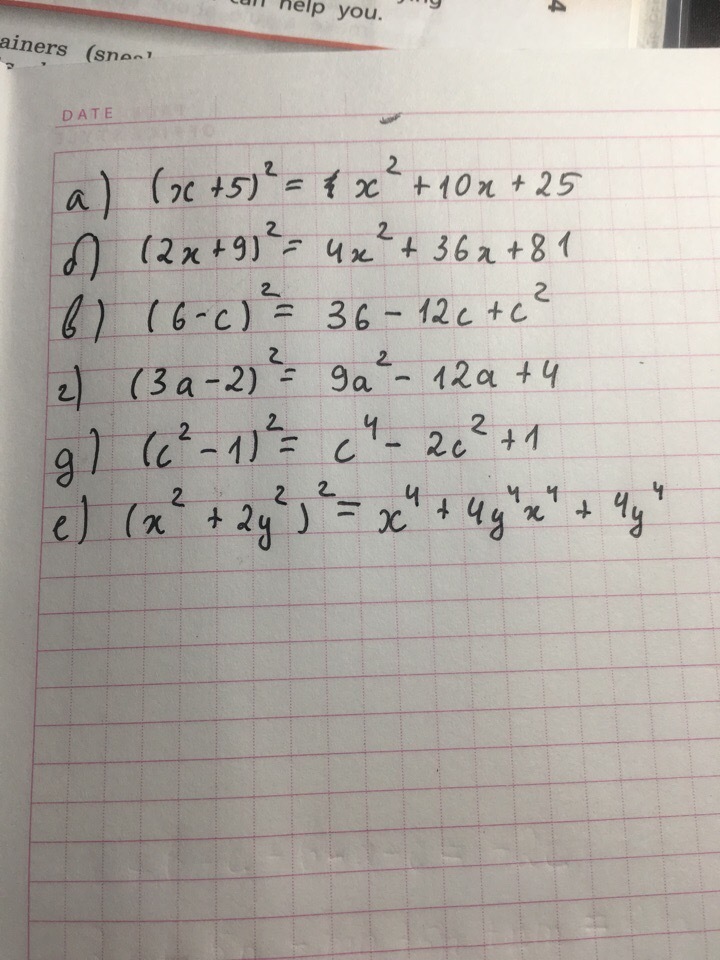 can help you.
4
ainers
DATE
а) (x + 5)² = x² + 10x + 25
б) (2x + 9)² = 4x² + 36x + 81
в) (6 - c)² = 36 - 12c + c²
г) (3a - 2)² = 9a² - 12a + 4
д) (c² - 1)² = c⁴ - 2c² + 1
е) (x² + 2y²)² = x⁴ + 4y⁴x⁴ + 4y⁴